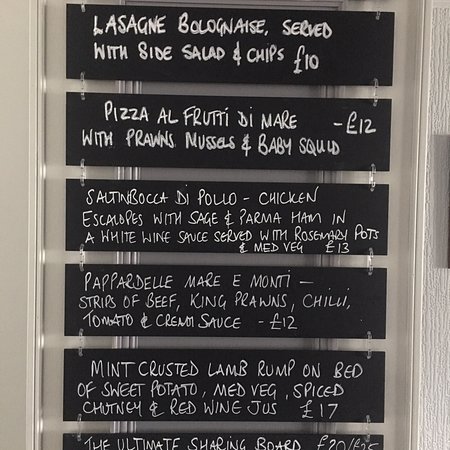 LASAGNE BOLOGNAISE, SERVED
WITH SIDE SALAD & CHIPS £10
PIZZA AL FRUTTI DI MARE - £12
WITH PRAWNS MUSSELS & BABY SQUID
SALTINBOCCA DI POLLO - CHICKEN
ESCALOPES WITH SAGE & PARMA HAM IN
A WHITE WINE SAUCE SERVED WITH ROSEMARY POTS
& MED VEG £13
PAPPARDELLE MARE E MONTI -
STRIPS OF BEEF, KING PRAWNS, CHILLI,
TOMATO & CREAM SAUCE - £12
MINT CRUSTED LAMB RUMP ON BED
OF SWEET POTATO, MED VEG, SPICED
CHUTNEY & RED WINE JUS £17
THE ULTIMATE SHARING BOARD £20/£25